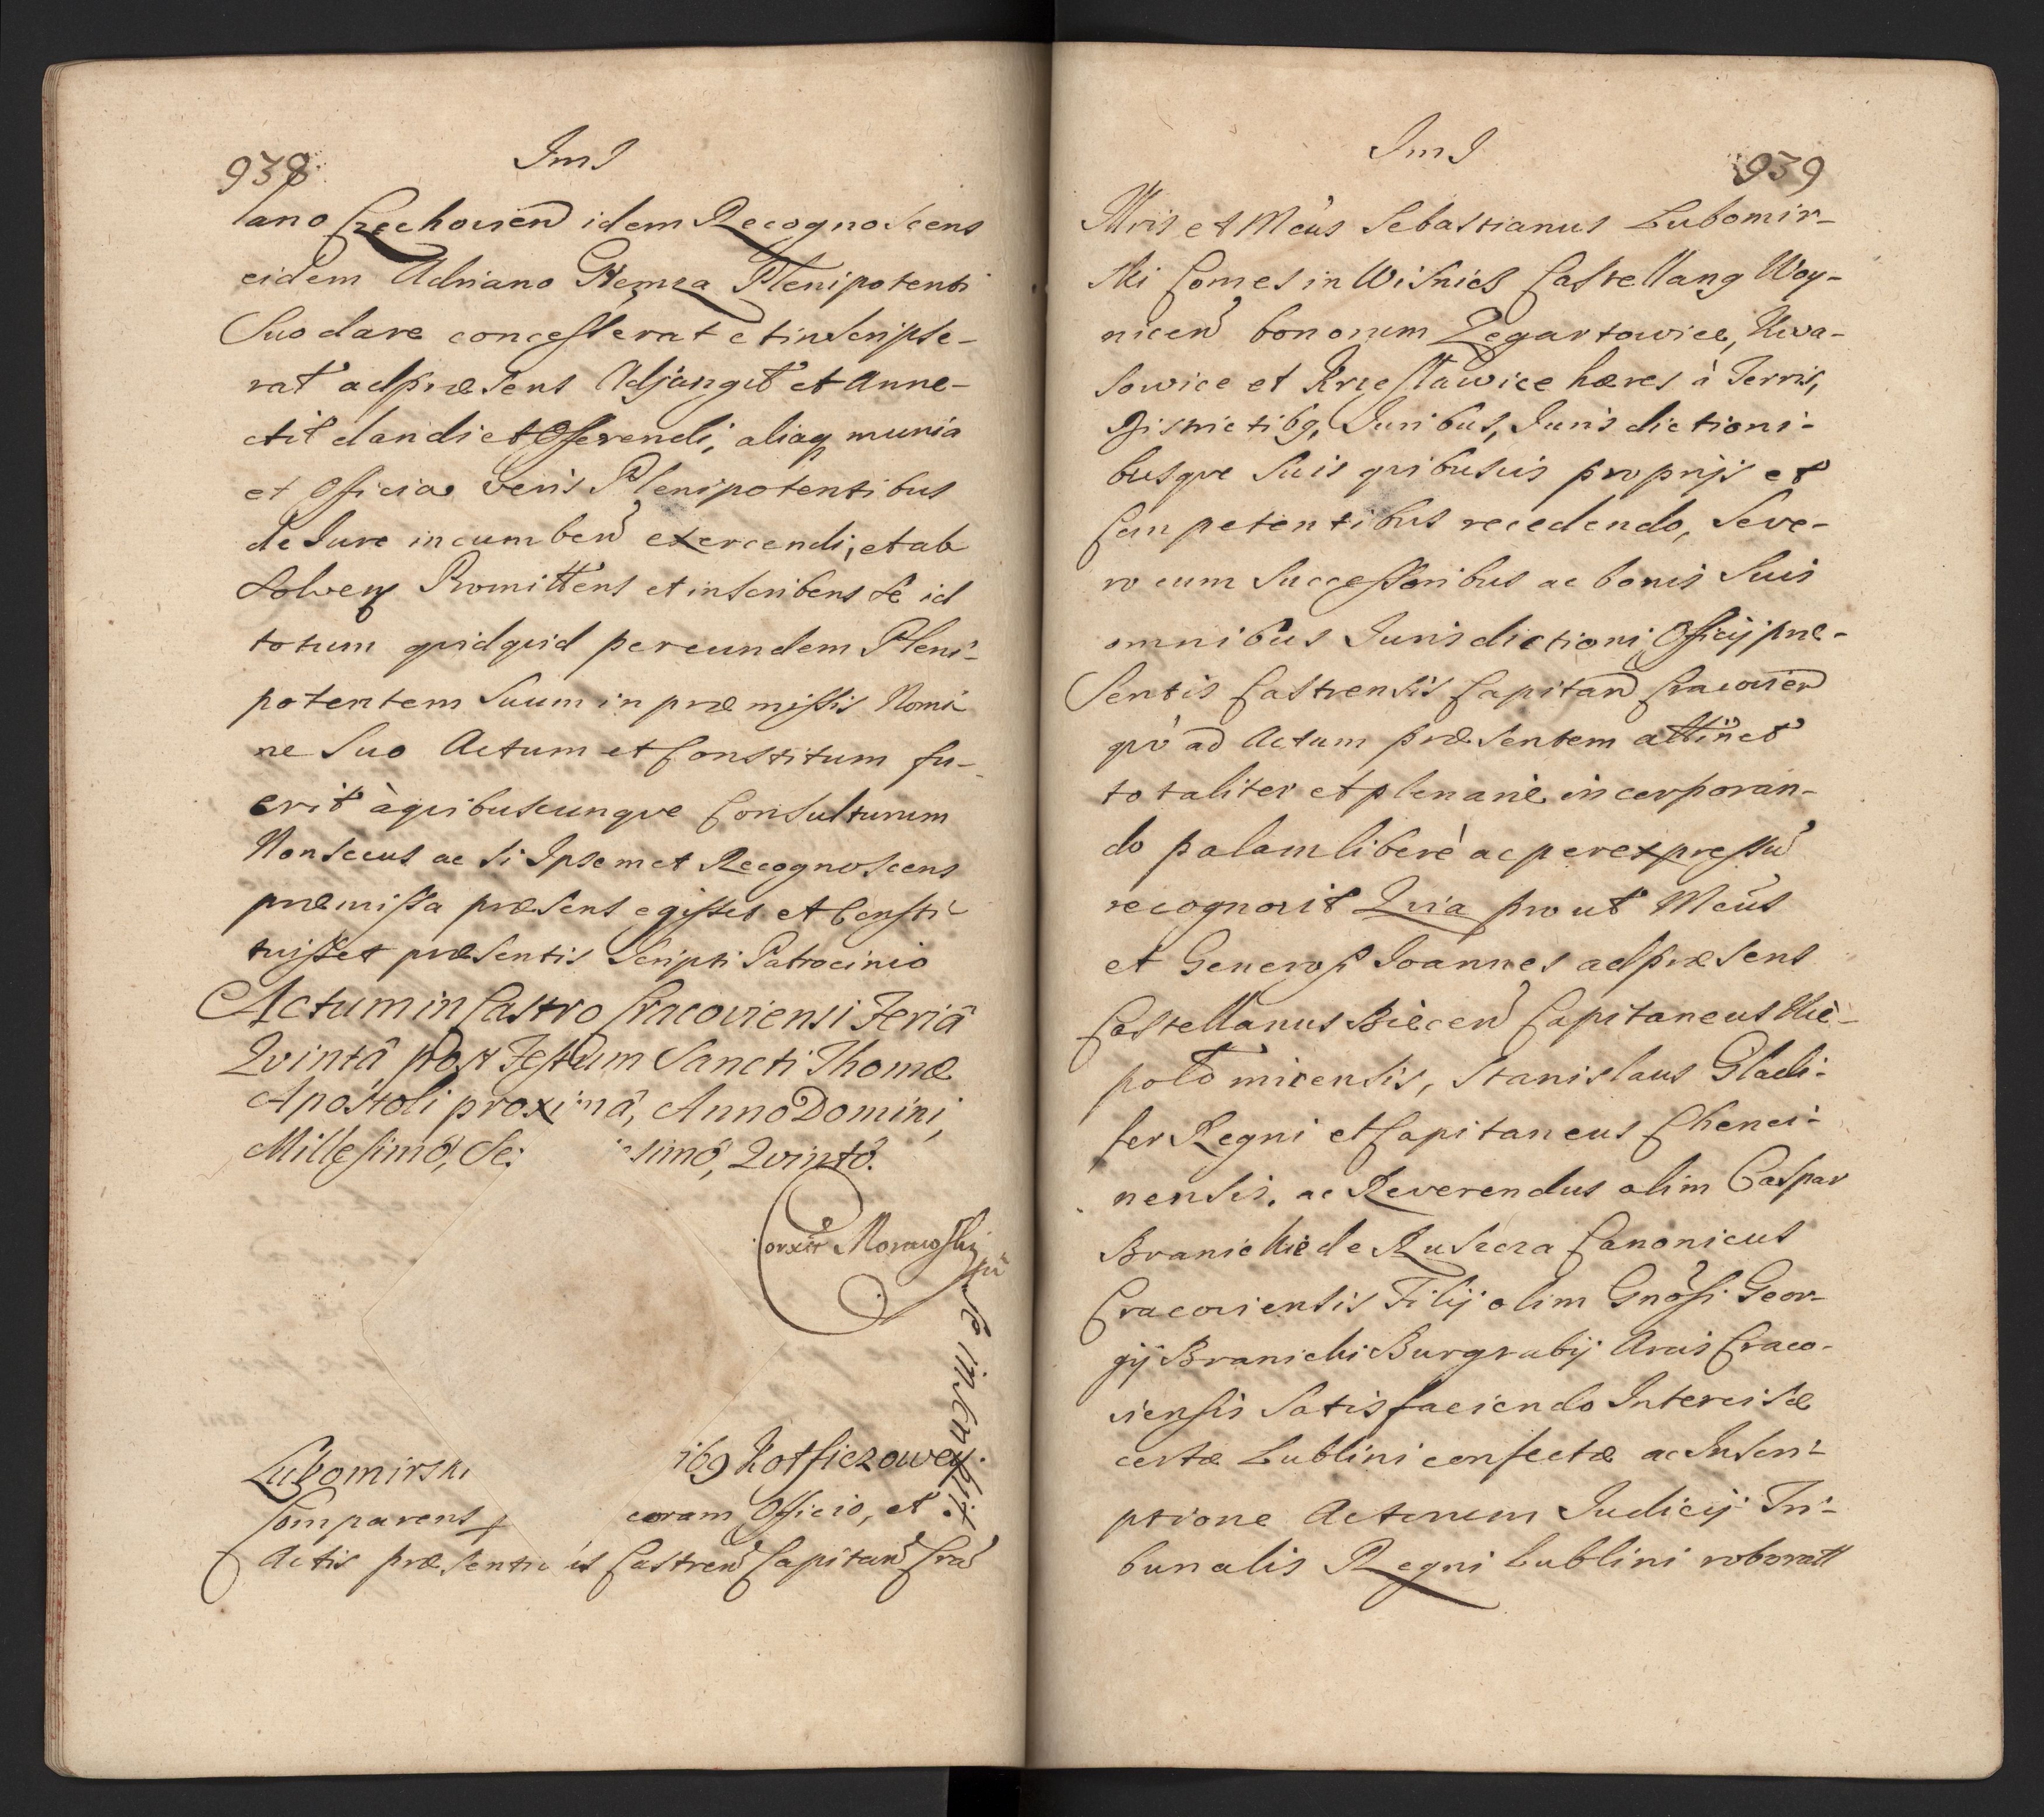 938
JmJ
lano Czechovien idem Recognoscens
eidem Adriano Niemsta Plenipotenti
Suo dare concesserat et inscripse-
rat adpræsens Adjungit et Anne-
ctit dandi et Offerendi, aliaq munia
et Officia veris Plenipotentibus
de Jure incumben exercendi, et ab
solven Promittens et inscribens se id
totum quidquid per eundem Pleni-
potentem Suum in præmissis Nomi
ne Suo Actum et Constitum fu-
erit à quibuscunqve Consulturum
Non secus ac si Ipsemet Recognoscens
præmissa præsens egisset et Consti-
tuisset præsentis Scripti Patrocinio
Actum in Castro Cracoviensi Feriâ
Qvintâ post Festum Sancti Thomæ
Apostoli proximâ, Anno Domini,
Millesimô, Se: esimô, Qvintô.
Corxit Morawski
mp
Lubomirski 169 Kotficzowey
se inscribit.
Comparens coram Officio, et
Actis præsenti is Castren Capitan Cra
JmJ
939
Illris et Mcus Sebastianus Lubomir-
ski Comes in Wisnicz Castellang Woy-
nicen bonorum Zegartowice, Kwa-
sowice et Krzesławice hæres à Terris,
Districtibg, Juribus, Jurisdictioni-
busqve Suis quibusvis proprijs et
Competentibus recedendo, Seve-
ro cum Successoribus ac bonis Suis
omnibus Jurisdictioni Officij præ-
Sentis Castrensis Capitan Cracovien
qvò ad Actum præsentem attinet
totaliter et plenariè incorporan-
do palam liberè ac per expressu
recognovit Qvia prout Mcus
et Generosi Joannes adpræsens
Castellanus Biecen Capitaneus Nie-
połomicensis, Stanislaus Gladi-
fer Regni et Capitaneus Chenci-
nensis. ac Reverendus olim Caspar
Branickie de Ruscza Canonicus
Cracoviensis Filij olim Gnosi Geor-
gij Branicki Burgrabij Arcis Craco-
viensis Satisfaciendo Intercisæ
certæ Lublini confectæ ac Inscri-
ptione Actorum Judicij Tri-
bunalis Regni Lublini roboratt